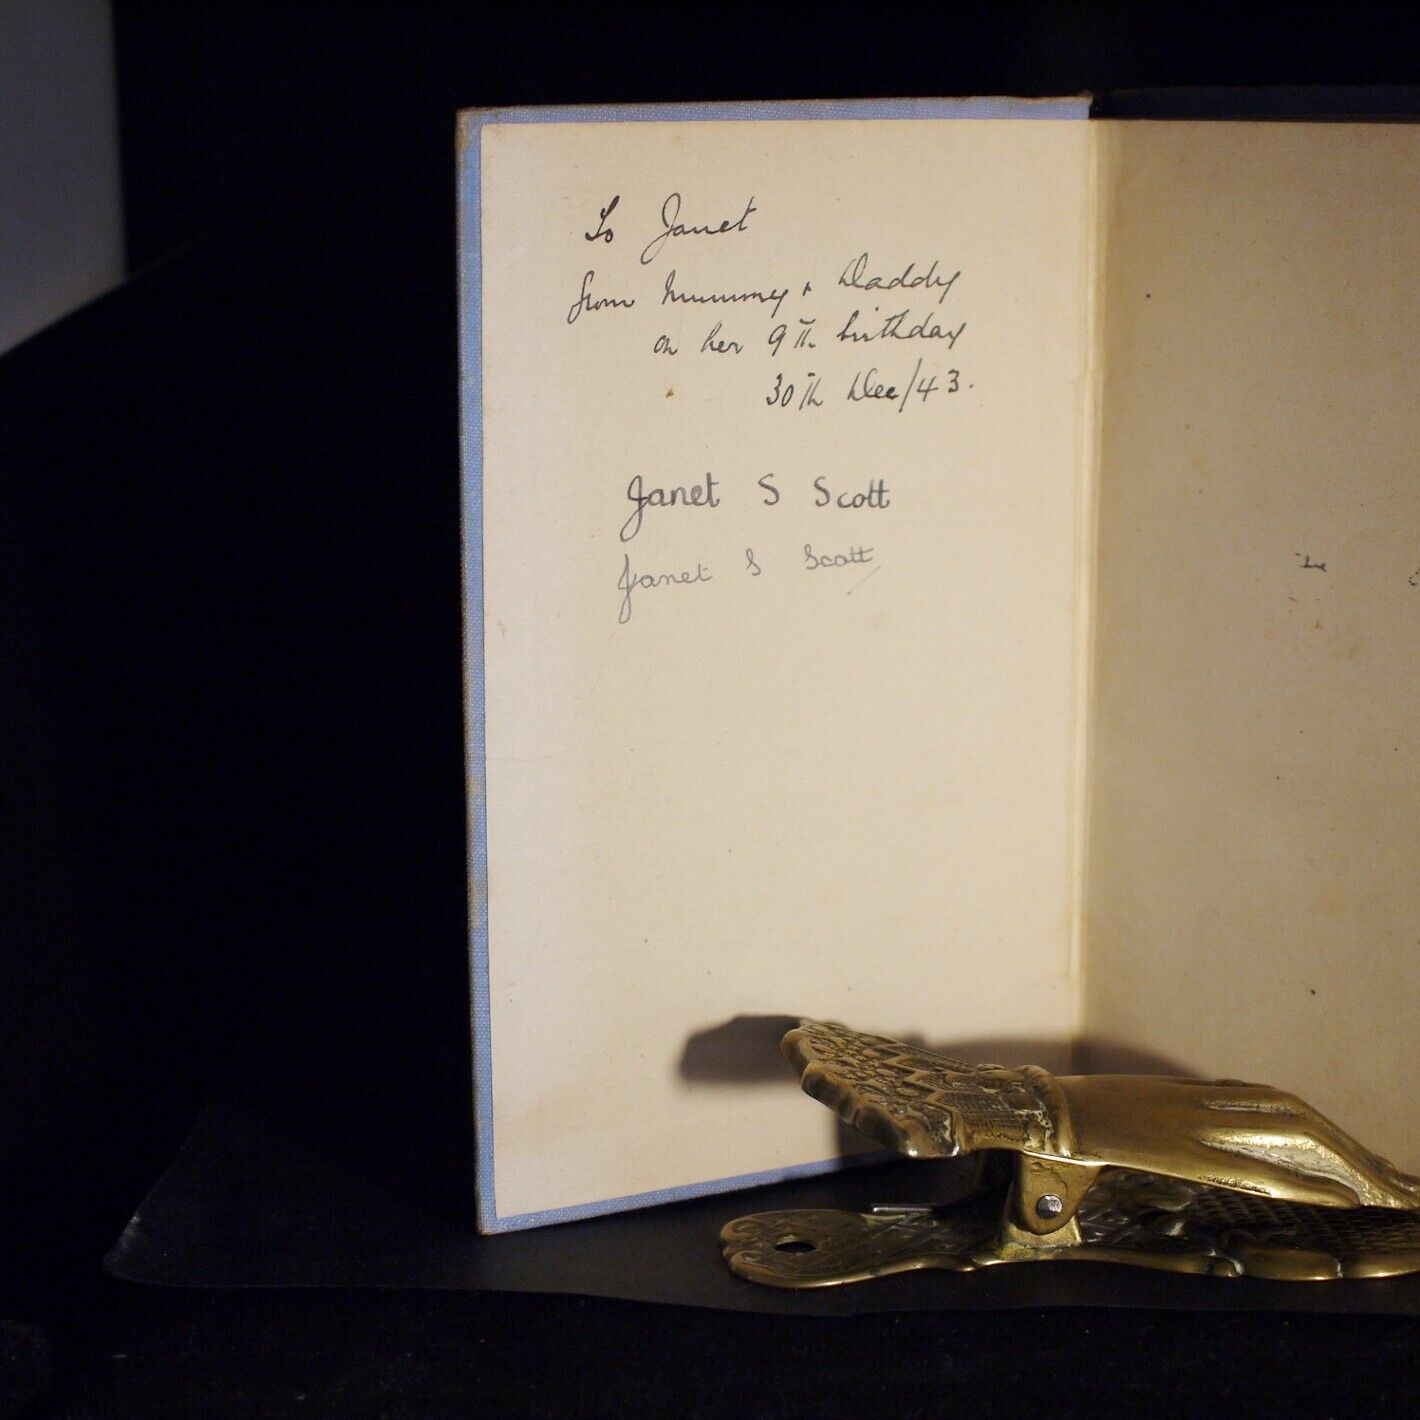 To Janet
from Mummy + Daddy
on her 9th birthday
30th Dec/43.
Janet S Scott
Janet S Scott